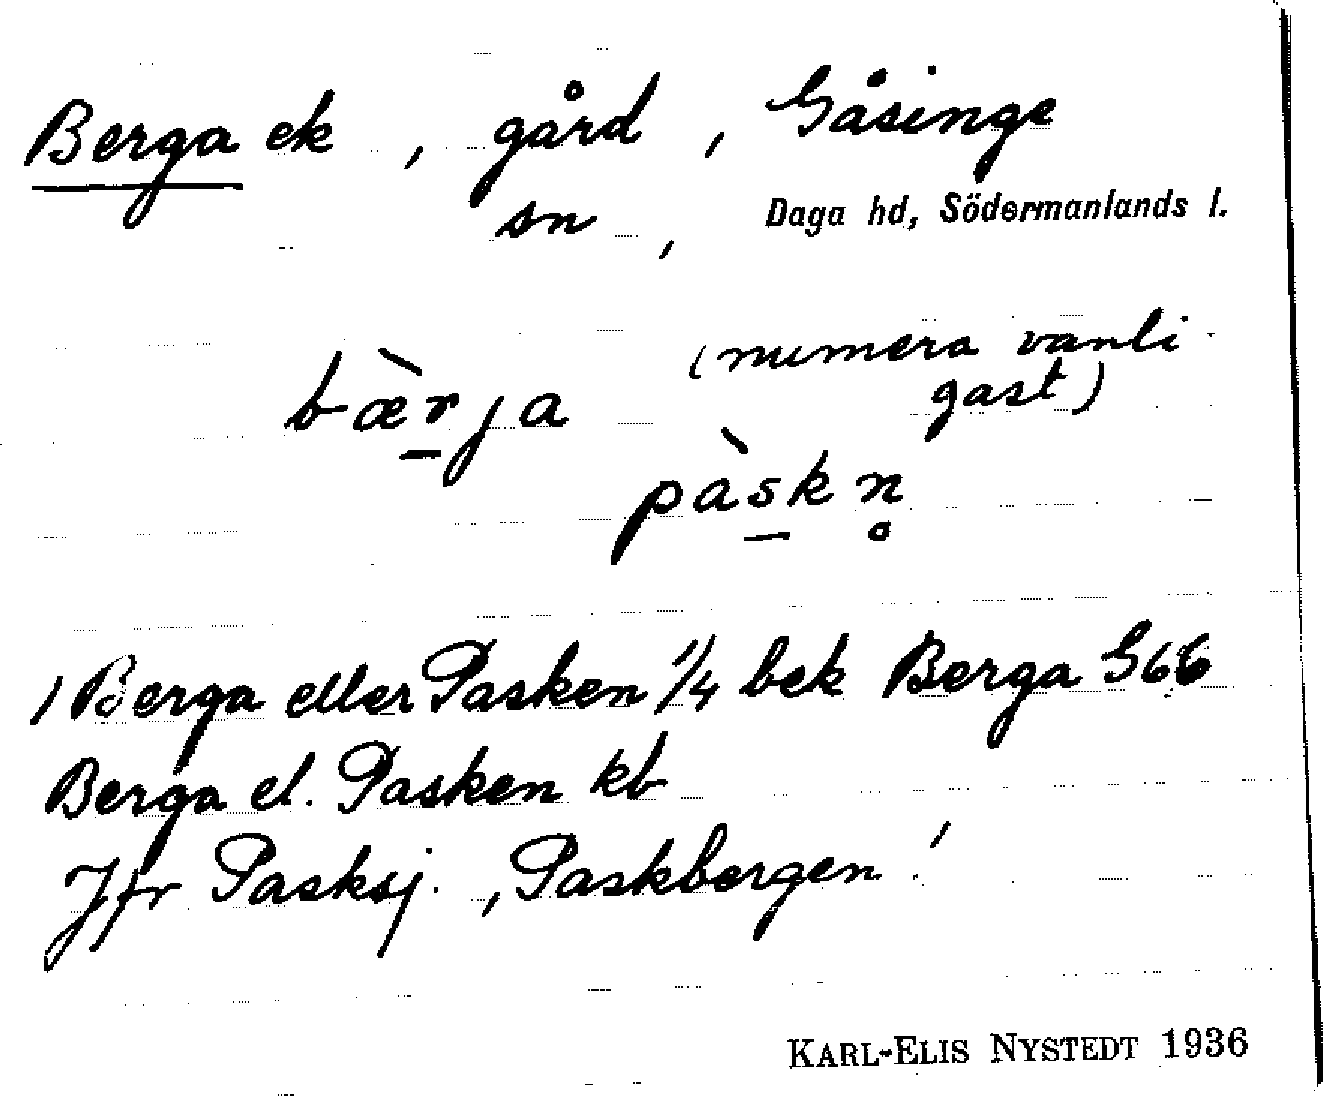 Berga ek, gård, Gåsinge
sn, Daga hd, Södermanlands l.
bæ̀rja (numera vanli-
gast)
pàskn̥
/ Berga eller Pasken 1/4 bek Berga G66
Berga el. Pasken kb
Jfr Pasksj., Paskbergen!
KARL-ELIS NYSTEDT 1936